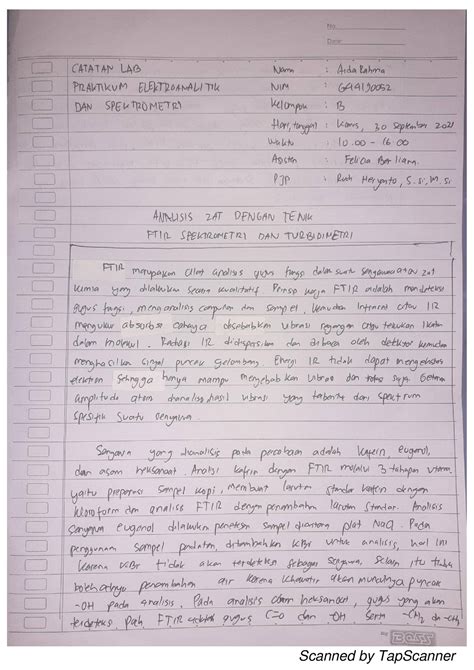 No.
Date:
CATATAN LAB
PRAKTIKUM ELEKTROANALITIK
DAN SPEKTROMETRI
Nama : Arda Rahma
NIM :
Kelompok : B
Hari, tanggal : Kamis, 30 September 2021
Waktu : 10.00 - 16.00
Asisten : Felicia Berliana.
PJP : Rudi Heryanto, S.Si, M.Si
ANALISIS ZAT DENGAN TENIK
FTIR SPEKTROMETRI DAN TURBIDIMETRI
FTIR merupakan alat analisis gugus fungsi dalam suatu senyawa atau zat
kimia yang dilakukan secara kualitatif. Prinsip kerja FTIR adalah mendeteksi
gugus fungsi, menganalisis campuran dan sampel, kemudian infrared atau IR
mengukur absorbsi cahaya disebabkan vibrasi regangan atau tekukan ikatan
dalam molekul. Radiasi IR didispersikan dan dibaca oleh detektor kemudian
menghasilkan sinyal puncak gelombang. Energi IR tidak dapat mengeksitasi
elektron sehingga hanya mampu menyebabkan vibrasi dan rotasi saja. Getaran
amplitudo atom dianalisis hasil vibrasi yang terbentuk dari spectrum
spesifik suatu senyawa.
Senyawa yang dianalisis pada percobaan adalah kafein, eugenol,
dan asam heksanoat. Analisis kafein dengan FTIR melalui 3 tahapan utama
yaitu preparasi sampel kopi, membuat larutan standar kafein dengan
kloroform dan analisis FTIR dengan penambahan larutan standar. Analisis
senyawa eugenol dilakukan penetesan sampel diantara plat NaCl. Pada
penggunaan sampel padatan, ditambahkan KBr untuk analisis, hal ini
karena KBr tidak akan terdeteksi sebagai senyawa, selain itu tidak
bolehnya penambahan air karena khawatir akan munculnya puncak
-OH pada analisis. Pada analisis asam heksanoat, gugus yang akan
terdeteksi pada FTIR adalah gugus C=O dan -OH, serta -CH2 dan -CH3
BOSS
Scanned by TapScanner